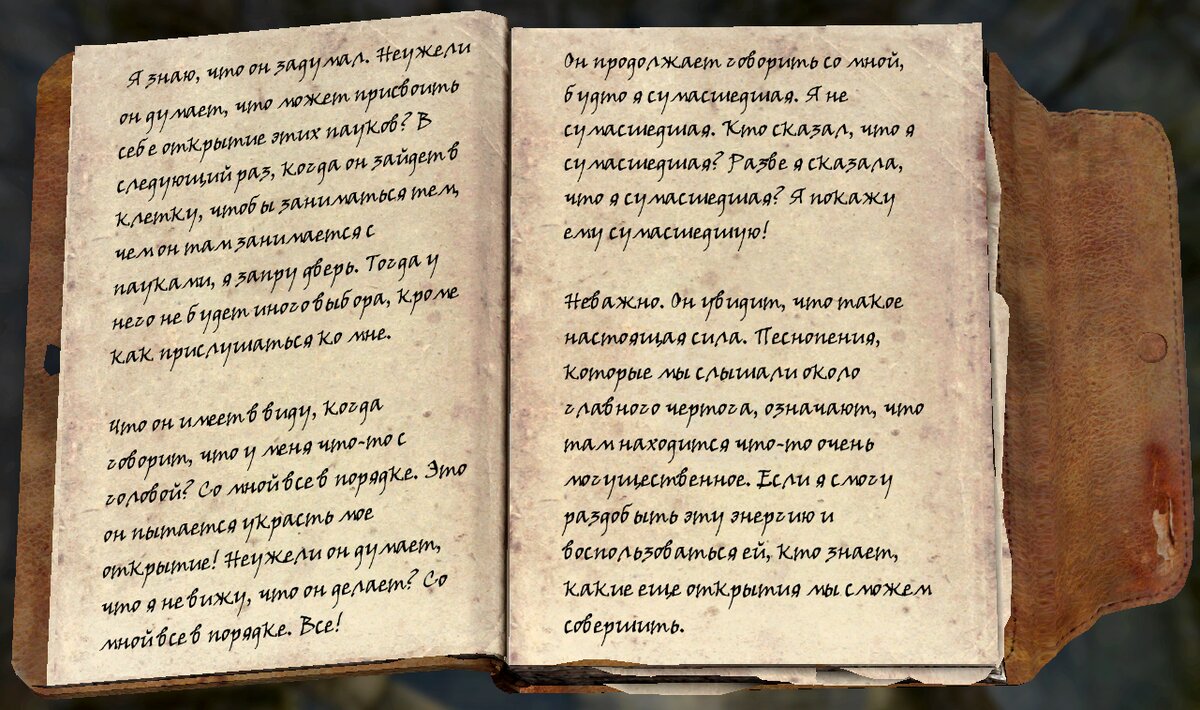 Я знаю, что он задумал. Неужели
он думает, что может присвоить
себе открытие этих пауков? В
следующий раз, когда он зайдет в
клетку, чтобы заниматься тем,
чем он там занимается с
пауками, я запру дверь. Тогда у
него не будет иного выбора, кроме
как прислушаться ко мне.
Что он имеет в виду, когда
говорит, что у меня что-то с
головой? Со мной все в порядке. Это
он пытается украсть мое
открытие! Неужели он думает,
что я не вижу, что он делает? Со
мной все в порядке. Все!
Он продолжает говорить со мной,
будто я сумасшедшая. Я не
сумасшедшая. Кто сказал, что я
сумасшедшая? Разве я сказала,
что я сумасшедшая? Я покажу
ему сумасшедшую!
Неважно. Он увидит, что такое
настоящая сила. Песнопения,
которые мы слышали около
главного чертога, означают, что
там находится что-то очень
могущественное. Если я смогу
раздобыть эту энергию и
воспользоваться ей, кто знает,
какие еще открытия мы сможем
совершить.